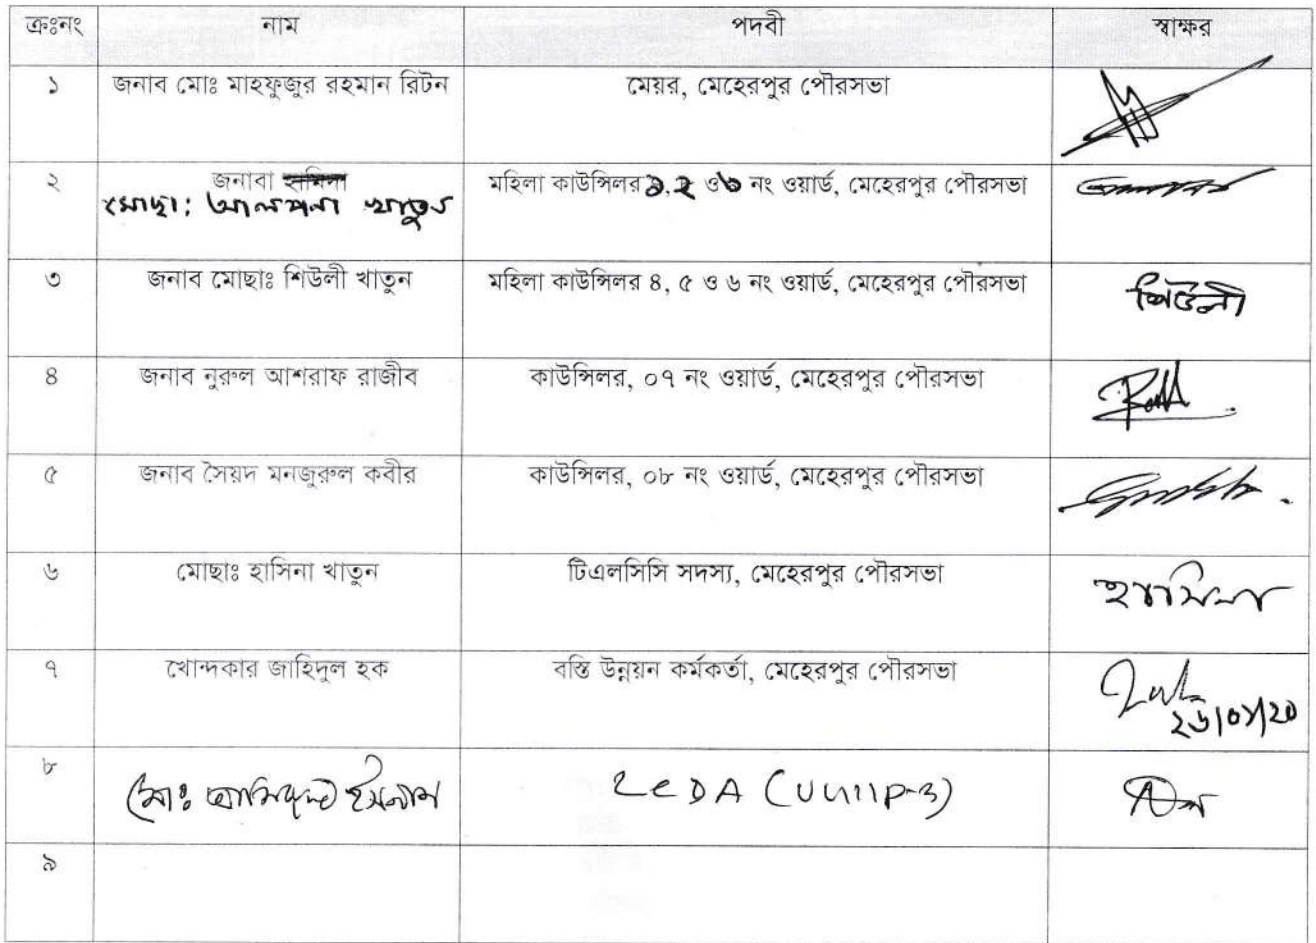 ক্রঃনং নাম পদবী স্বাক্ষর
১ জনাব মোঃ মাহফুজুর রহমান রিটন মেয়র, মেহেরপুর পৌরসভা
২ জনাবা মহিলা কাউন্সিলর ১, ২ ও ৩ নং ওয়ার্ড, মেহেরপুর পৌরসভা
মোছা: আলপনা খাতুন
৩ জনাব মোছাঃ শিউলী খাতুন মহিলা কাউন্সিলর ৪, ৫ ও ৬ নং ওয়ার্ড, মেহেরপুর পৌরসভা শিউলী
৪ জনাব নুরুল আশরাফ রাজীব কাউন্সিলর, ০৭ নং ওয়ার্ড, মেহেরপুর পৌরসভা
৫ জনাব সৈয়দ মনজুরুল কবীর কাউন্সিলর, ০৮ নং ওয়ার্ড, মেহেরপুর পৌরসভা
৬ মোছাঃ হাসিনা খাতুন টিএলসিসি সদস্য, মেহেরপুর পৌরসভা হাসিনা
৭ খোন্দকার জাহিদুল হক বস্তি উন্নয়ন কর্মকর্তা, মেহেরপুর পৌরসভা
৮ মোঃ ইসলাম
৯